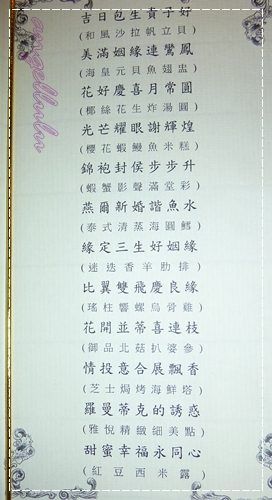 吉日包生貴子好
(和風沙拉帆立貝)
美滿姻緣連鸞鳳
(海皇元貝魚翅盅)
花好慶喜月常圓
(椰絲花生炸湯圓)
光芒耀眼謝輝煌
(櫻花蝦鰻魚米糕)
錦袍封侯步步升
(蝦蟹影聲滿堂彩)
燕爾新婚諧魚水
(泰式清蒸海圓鱈)
緣定三生好姻緣
(迷迭香羊肋排)
比翼雙飛慶良緣
(瑤柱響螺烏骨雞)
花開並蒂喜連枝
(御品北菇扒婆參)
情投意合展飄香
(芝士焗烤海鮮塔)
羅曼蒂克的誘惑
(雅悅精緻細美點)
甜蜜幸福永同心
(紅豆西米露)
angellulu